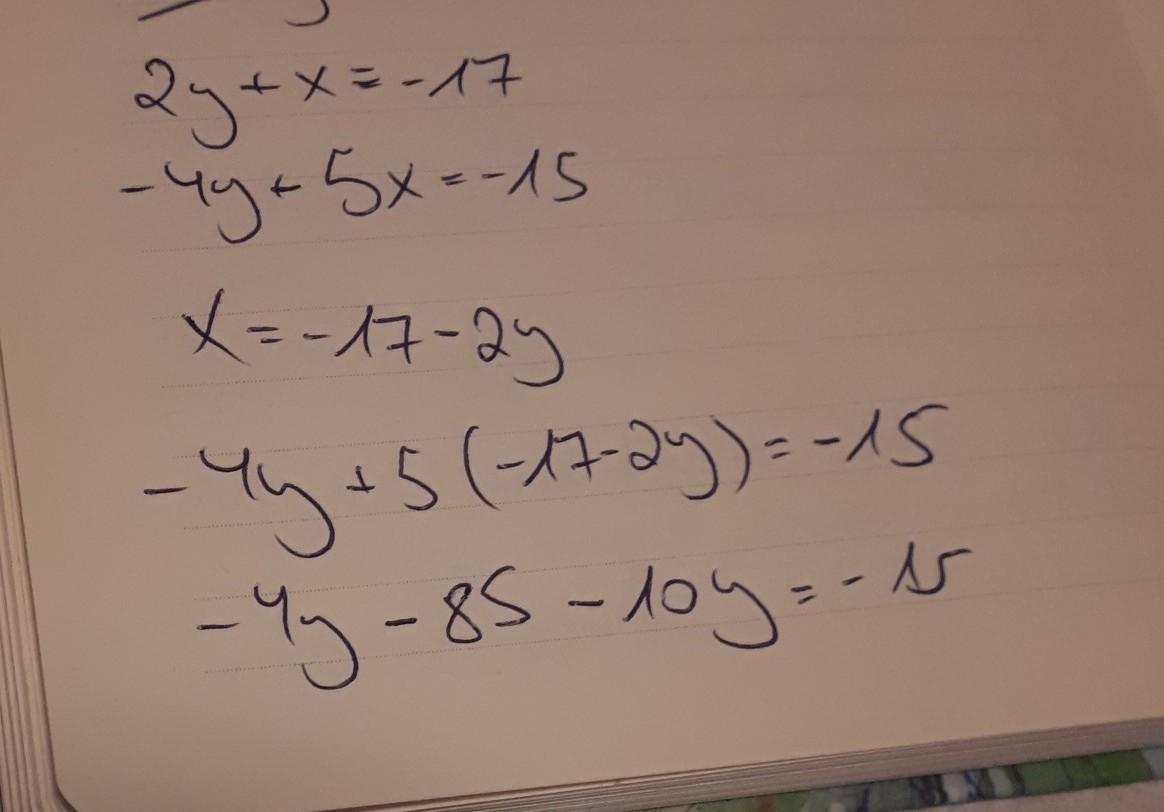 2y + x = -17
-4y + 5x = -15
x = -17 - 2y
-4y + 5 (-17-2y) = -15
-4y - 85 - 10y = -15